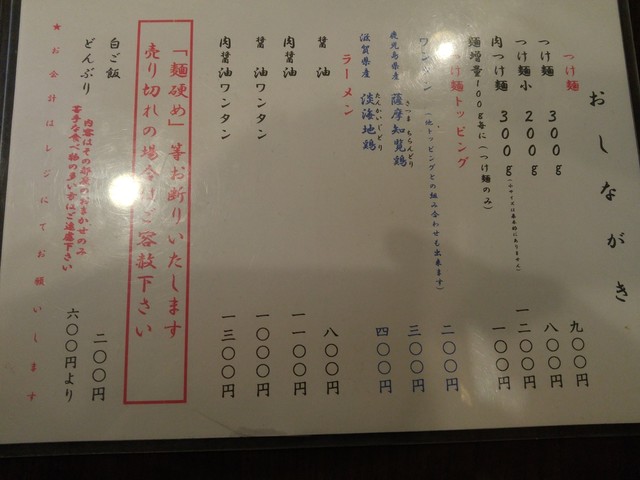 おしながき
つけ麺
つけ麺 300g 九〇〇円
つけ麺小 200g 八〇〇円
肉つけ麺 300g 一二〇〇円
麺増量100g毎に(つけ麺のみ) 一〇〇円
つけ麺トッピング
ワンタン (他トッピングとの組み合わせも出来ます) 二〇〇円
鹿児島県産 薩摩知覧鶏 三〇〇円
さつま ちらんどり
滋賀県産 淡海地鶏 四〇〇円
たんかいじどり
ラーメン
醤油 八〇〇円
肉醤油 一一〇〇円
醤油ワンタン 一〇〇〇円
肉醤油ワンタン 一三〇〇円
「麺硬め」等お断りいたします
売り切れの場合はご容赦下さい
白ご飯 二〇〇円
どんぶり 六〇〇円より
内容はその都度のおまかせのみ
苦手な食べ物の多い方はご遠慮下さい
★お会計はレジにてお願いします